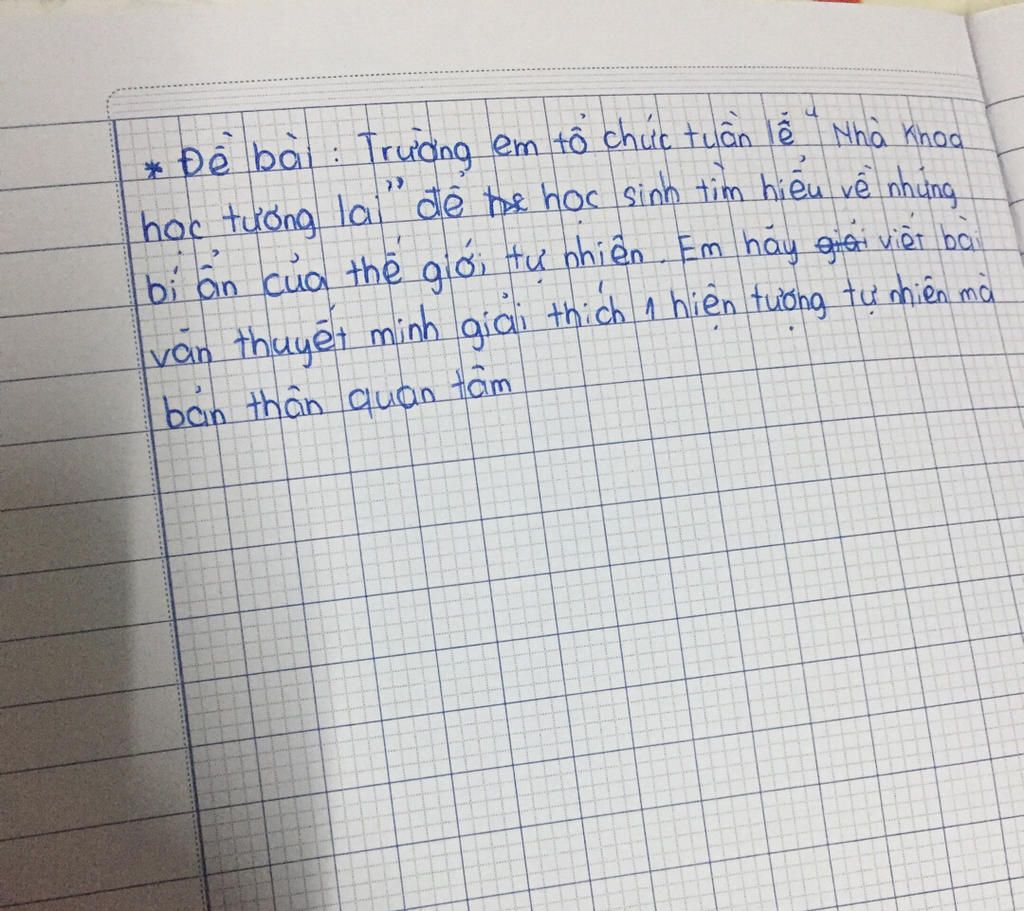 * Đề bài : Trường em tổ chức tuần lễ " Nhà Khoa
học tương lai " để học sinh tìm hiểu về những
bí ẩn của thế giới tự nhiên. Em hãy viết bài
văn thuyết minh giải thích 1 hiện tượng tự nhiên mà
bản thân quan tâm